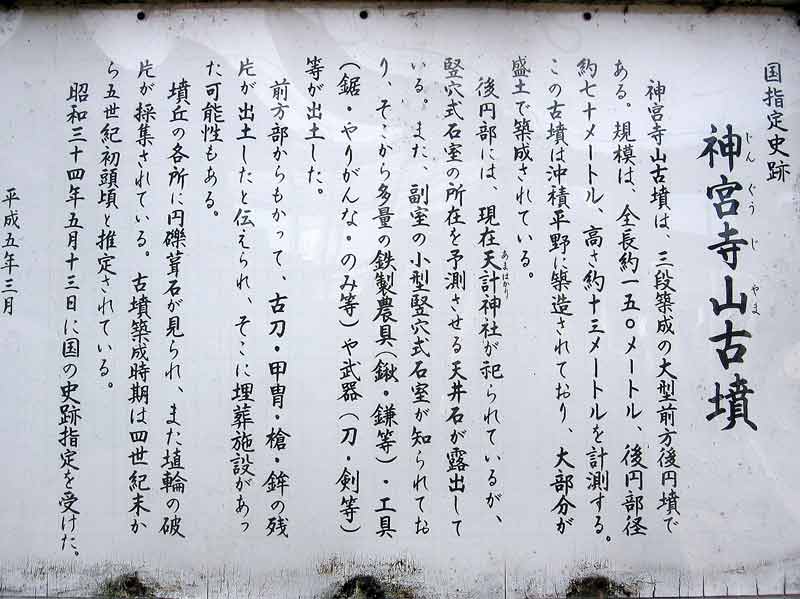 国指定史跡
神宮寺山古墳
じんぐうじやま
神宮寺山古墳は、三段築成の大型前方後円墳で
ある。規模は、全長約一五〇メートル、後円部径
約七十メートル、高さ約十三メートルを計測する。
この古墳は沖積平野に築造されており、大部分が
盛土で築成されている。
後円部には、現在天計神社が祀られているが、
あまはかり
竪穴式石室の所在を予測させる天井石が露出して
いる。また、副室の小型竪穴式石室が知られてお
り、そこから多量の鉄製農具(鍬・鎌等)・工具
(鋸・やりがんな・のみ等)や武器(刀・剣等)
等が出土した。
前方部からもかつて、古刀・甲冑・槍・鉾の残
片が出土したと伝えられ、そこに埋葬施設があっ
た可能性もある。
墳丘の各所に円礫葺石が見られ、また埴輪の破
片が採集されている。古墳築成時期は四世紀末か
ら五世紀初頭頃と推定されている。
昭和三十四年五月十三日に国の史跡指定を受けた。
平成五年三月